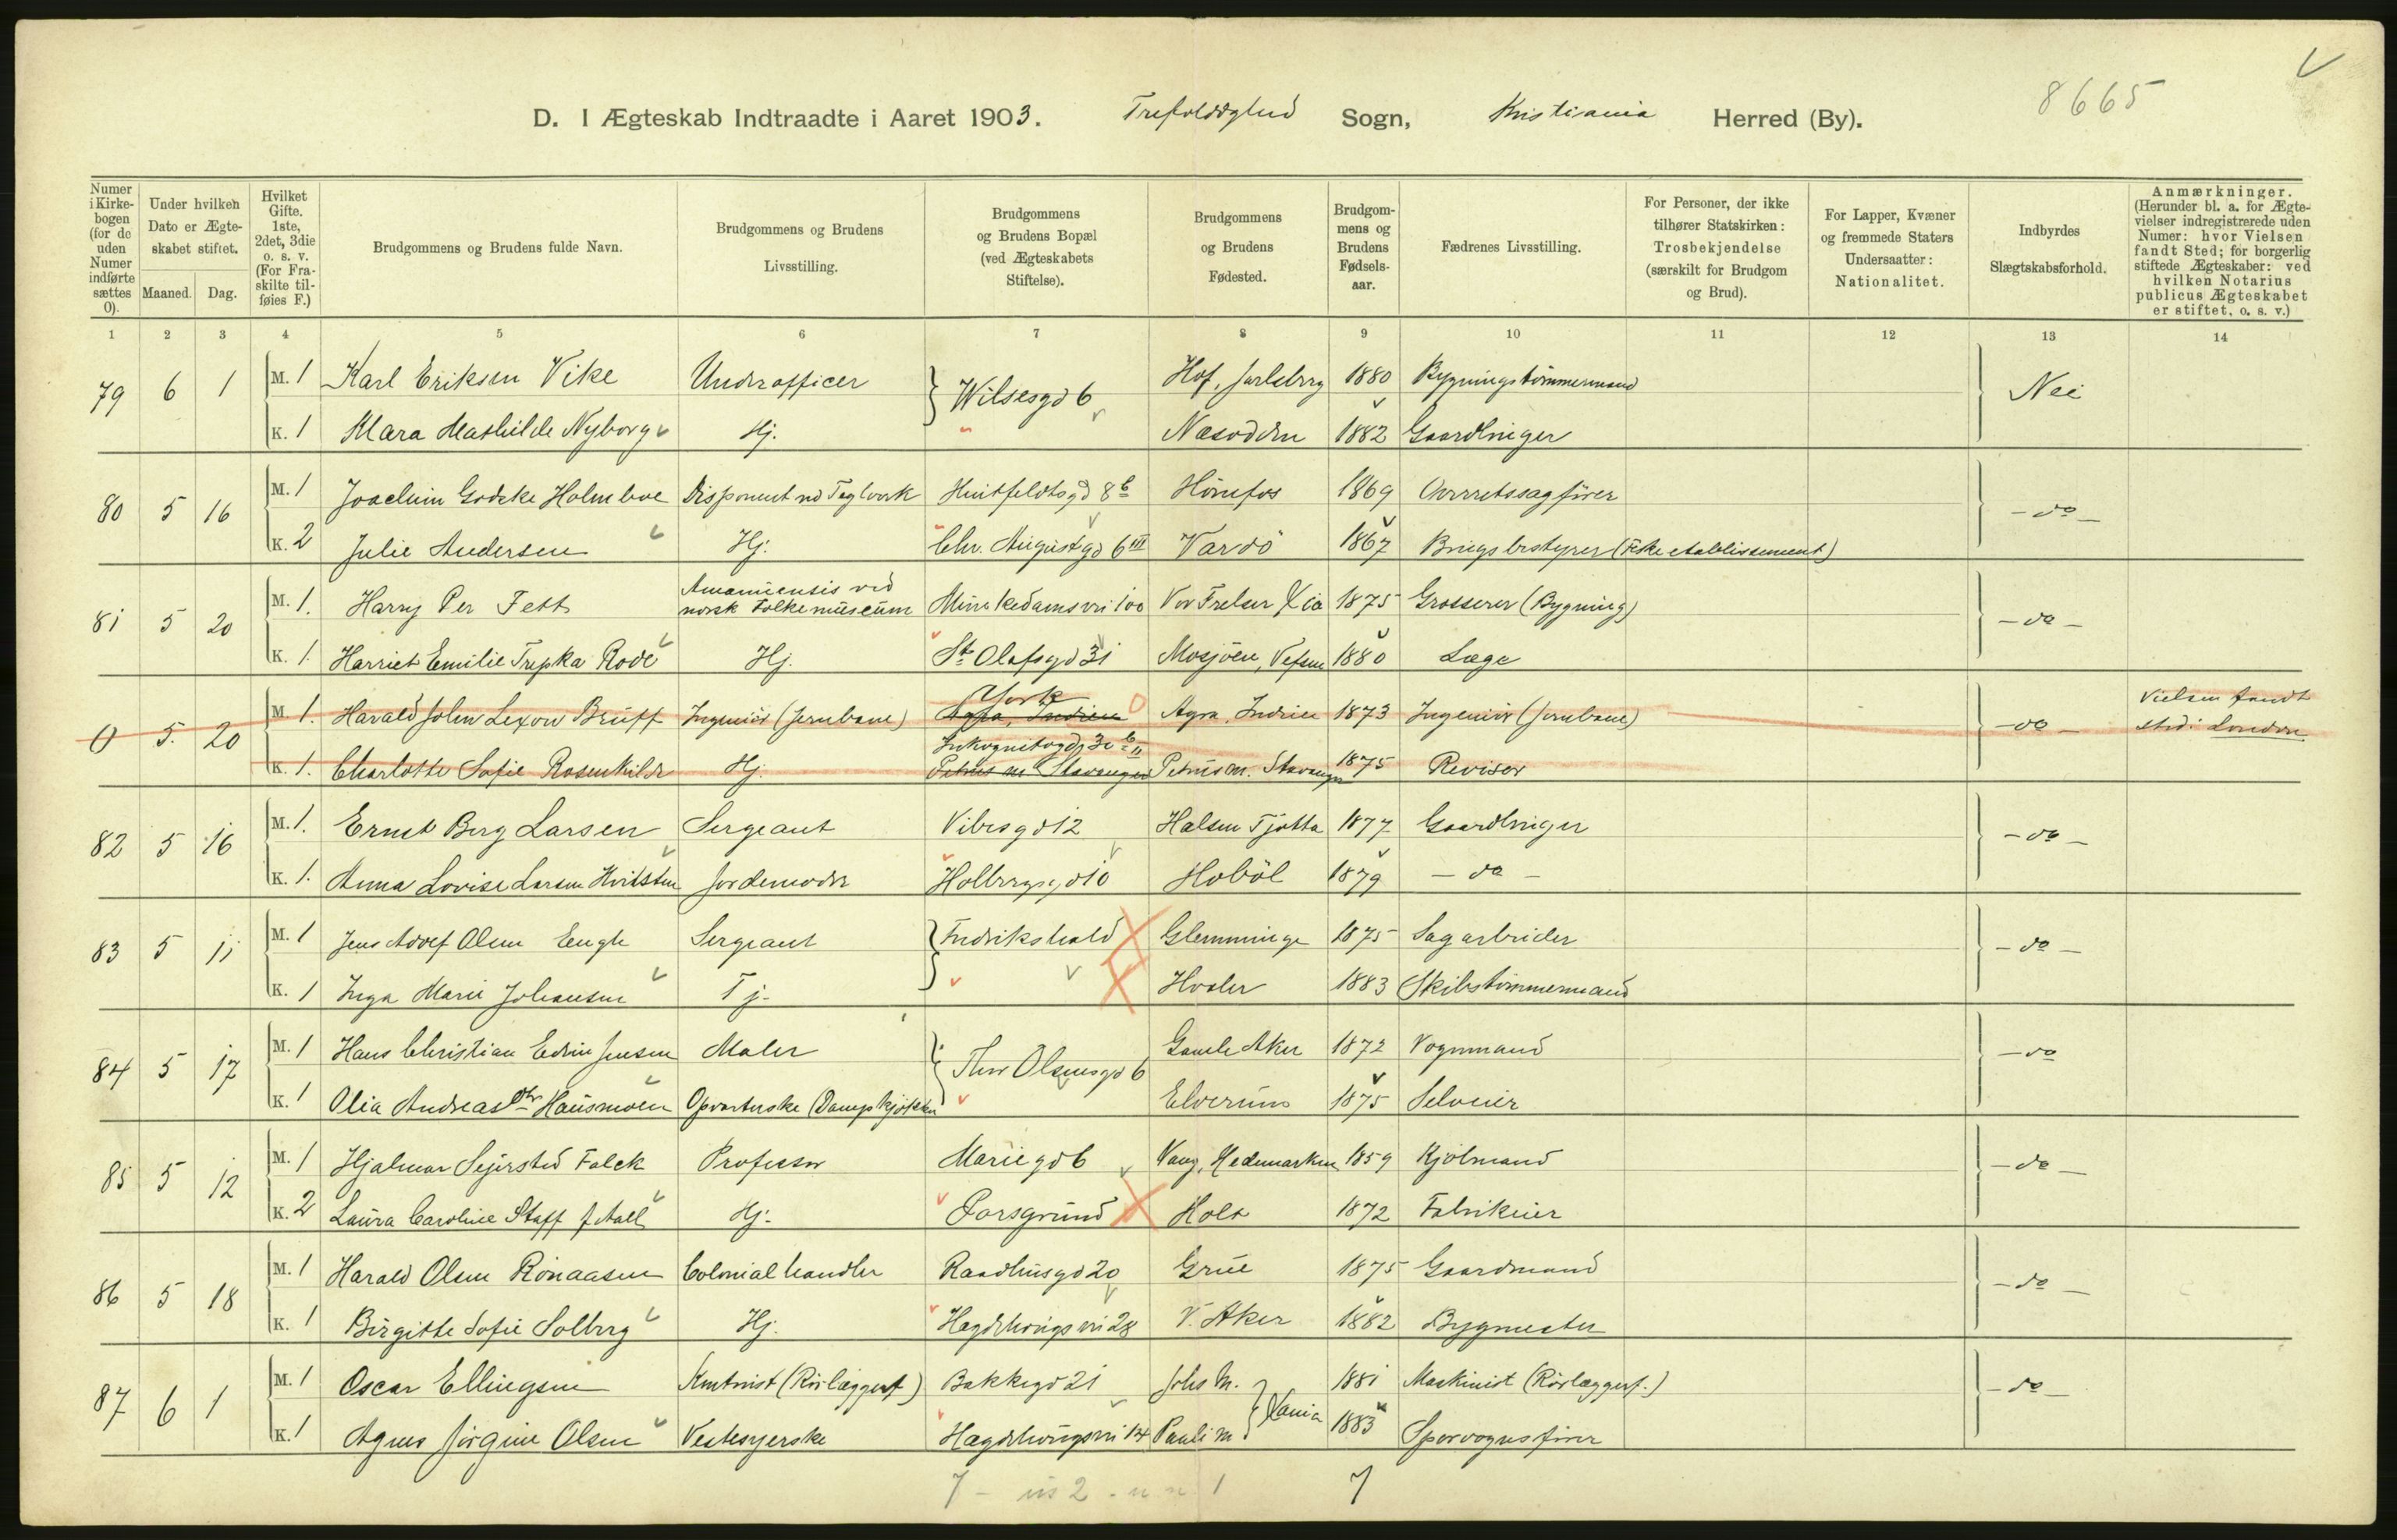 8665
D. I Ægteskab Indtraadte i Aaret 1903. Trefoldighed Sogn, Kristiania Herred (By).
Numer i Kirke-bogen (for de uden Numer indførte sættes 0).
Under hvilken Dato er Ægte-skabet stiftet.
Maaned. Dag.
Hvilket Gifte. 1ste, 2det, 3die o. s. v. (For Fra-skilte til-føies F.)
Brudgommens og Brudens fulde Navn.
Brudgommens og Brudens Livsstilling.
Brudgommens og Brudens Bopæl (ved Ægteskabets Stiftelse).
Brudgommens og Brudens Fødested.
Brudgom-mens og Brudens Fødsels-aar.
Fædrenes Livsstilling.
For Personer, der ikke tilhører Statskirken: Trosbekjendelse (særskilt for Brudgom og Brud).
For Lapper, Kvæner og fremmede Staters Undersaatter: Nationalitet.
Indbyrdes Slægtskabsforhold.
Anmærkninger. (Herunder bl. a. for Ægte-vielser indregistrerede uden Numer: hvor Vielsen fandt Sted; for borgerlig stiftede Ægteskaber: ved hvilken Notarius publicus Ægteskabet er stiftet, o. s. v.)
1 2 3 4 5 6 7 8 9 10 11 12 13 14
79 6 1 M. 1 Karl Eriksen Vike Underofficer Wilsesgd 6 Hof, Jarlsberg 1880 Bygningstömmermand Nei
K. 1 Klara Mathilde Nyborg Hj. Næsodden 1882 Gaardbruger
80 5 16 M. 1 Joachim Godske Holmboe Disponent ved Teglverk Huitfeldtsgd 8b Hönefos 1869 Overretssagförer - do -
K. 2 Julie Andersen Hj. Chr. Augustgd 6 III Vardö 1867 Brugsbestyrer
81 5 20 M. 1. Harry Per Fett Amanuensis ved norsk Folkemuseum Munkedamsvei 100 Vor Frelser Kia 1875 Grosserer (Bygning) - do -
K. 1. Harriet Emilie Trepka Rode Hj. St Olafsgd 31 Mosjöen, Vefsen 1880 Læge
0 5. 20 M 1. Harald John Lexow Brüff Ingeniör (Jernbane) York Agra, Indien Agra, Indien 1873 Ingeniör (Jernbane) - do - Vielsen fandt sted i London
K. 1. Charlotte Sofie Rosenkilde Hj. Inkognitogd 30 b II Petrus m Stavanger Petrus m. Stavanger 1875 Revisor
82 5 16 M. 1. Ernst Berg Larsen Sergeant Vibesgd 12 Halsen Tjøtta 1877 Gaardbruger - do -
K. 1. Anna Lovise Larsen Hvitsten Jordemoder Holbergsgd 10 Hoböl 1879 - do -
83 5 11 M. 1 Jens Adolf Olsen Engh Sergeant Fredrikshald Glemminge 1875 Sagarbeider - do -
K. 1 Inga Marie Johansen Tj. Hvaler 1883 Skibstömmermand
84 5 17 M. 1 Hans Christian Edvin Jensen Maler Thor Olsensgd 6 Gamle Aker 1872 Vognmand - do
K. 1 Olia Andreasdtr Hausmoen Opvarterske (Dampkjökken Elverum 1875 Selveier
85 5 12 M. 1 Hjalmar Sejersted Falck Professor Mariegd 6 Vang, Hedemarken 1859 Kjöbmand - do -
K. 2 Laura Caroline Staff f. Aall Hj. Porsgrund Holt 1872 Fabrikeier
86 5 18 M. 1 Harald Olsen Rönaasen Colonialhandler Raadhusgd 20 Grue 1875 Gaardmand - do -
K. 1 Birgitte Sofie Solberg Hj. Hægdehaugsvei 28 V. Aker 1882 Bygmester
87 6 1 M. 1 Oscar Ellingsen Kontorist (Rörlæggerf.) Bakkegd 21 Johs M. Kania 1881 Maskinist (Rörlæggerf.) - do -
K. 1 Agnes Jörgine Olsen Vestesyerske Hægdehaugsvei 14 Pauli M 1883 Sporvognsförer
7 - 7